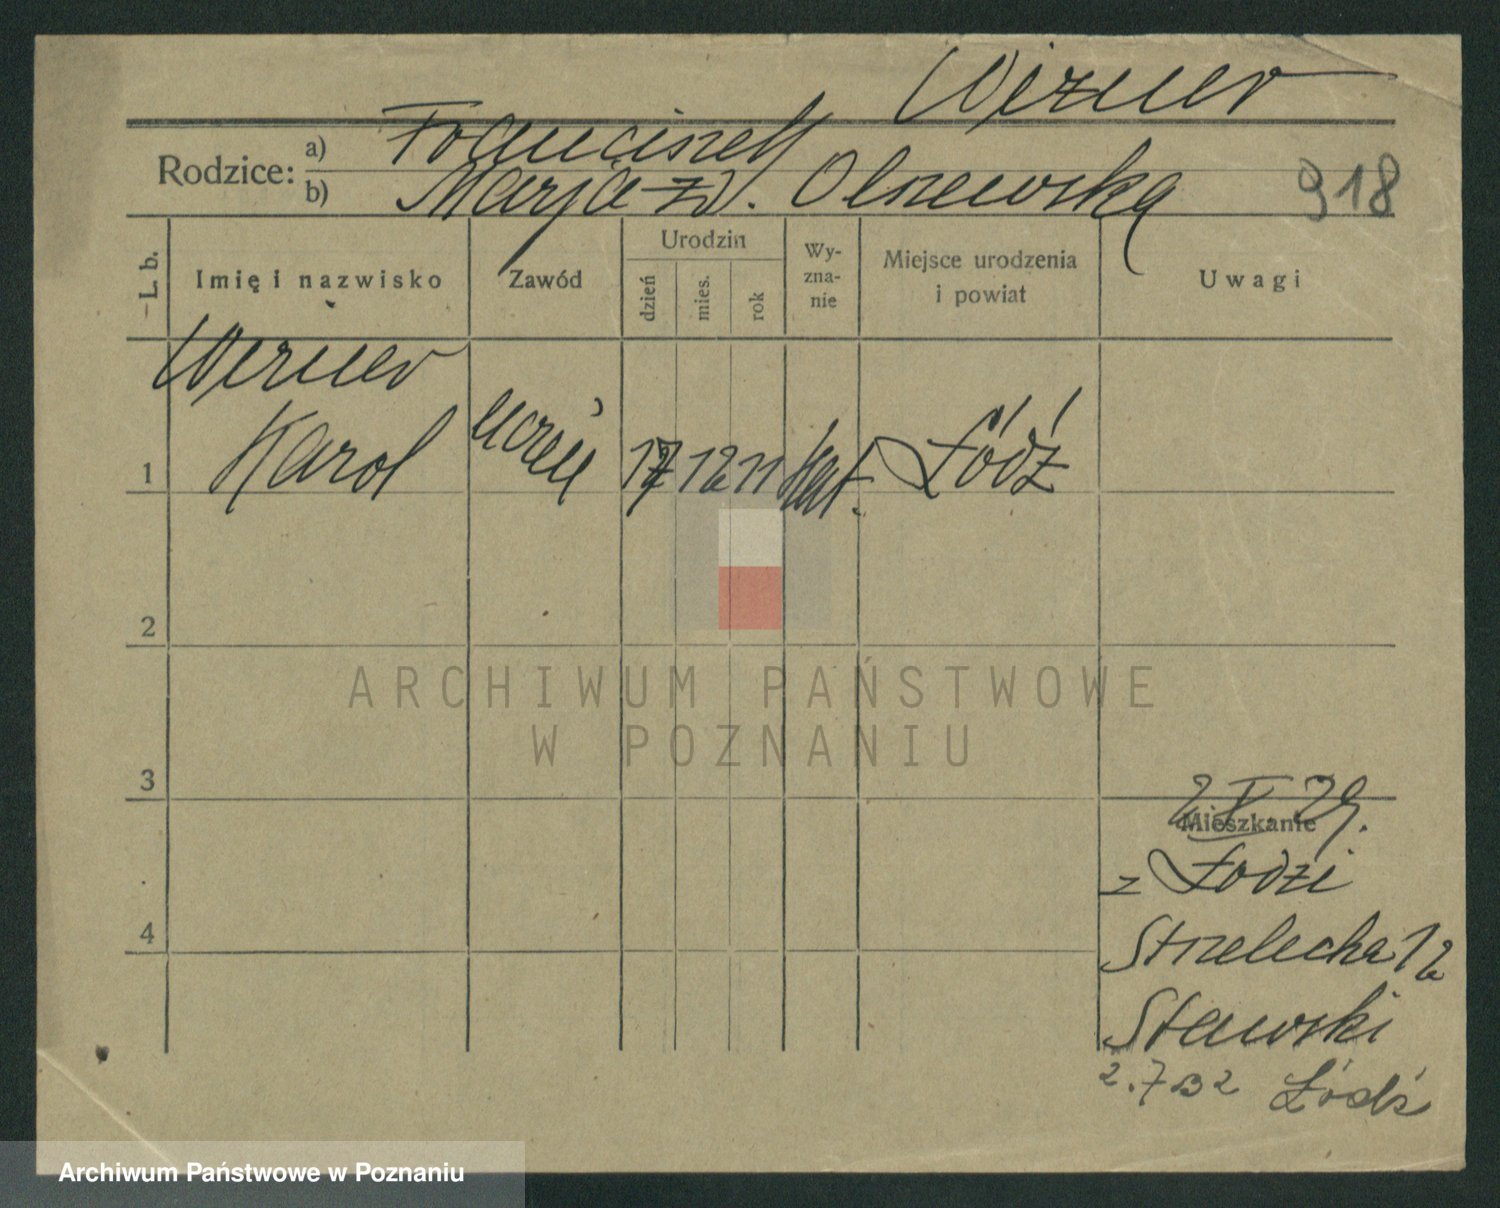 Werner
Rodzice: a) Franciszek
b) Marja zd. Olszewska 918
L. b. Imię i nazwisko Zawód Urodzin dzień mies. rok Wy-zna-nie Miejsce urodzenia i powiat Uwagi
Werner
1 Karol uczeń 17 12 11 kat. Łódź
2
3
2 V 29.
Mieszkanie
z Łodzi
4 Strzelecka 12
Stawski
2.7.32 Łódź
ARCHIWUM PAŃSTWOWE
W POZNANIU
Archiwum Państwowe w Poznaniu